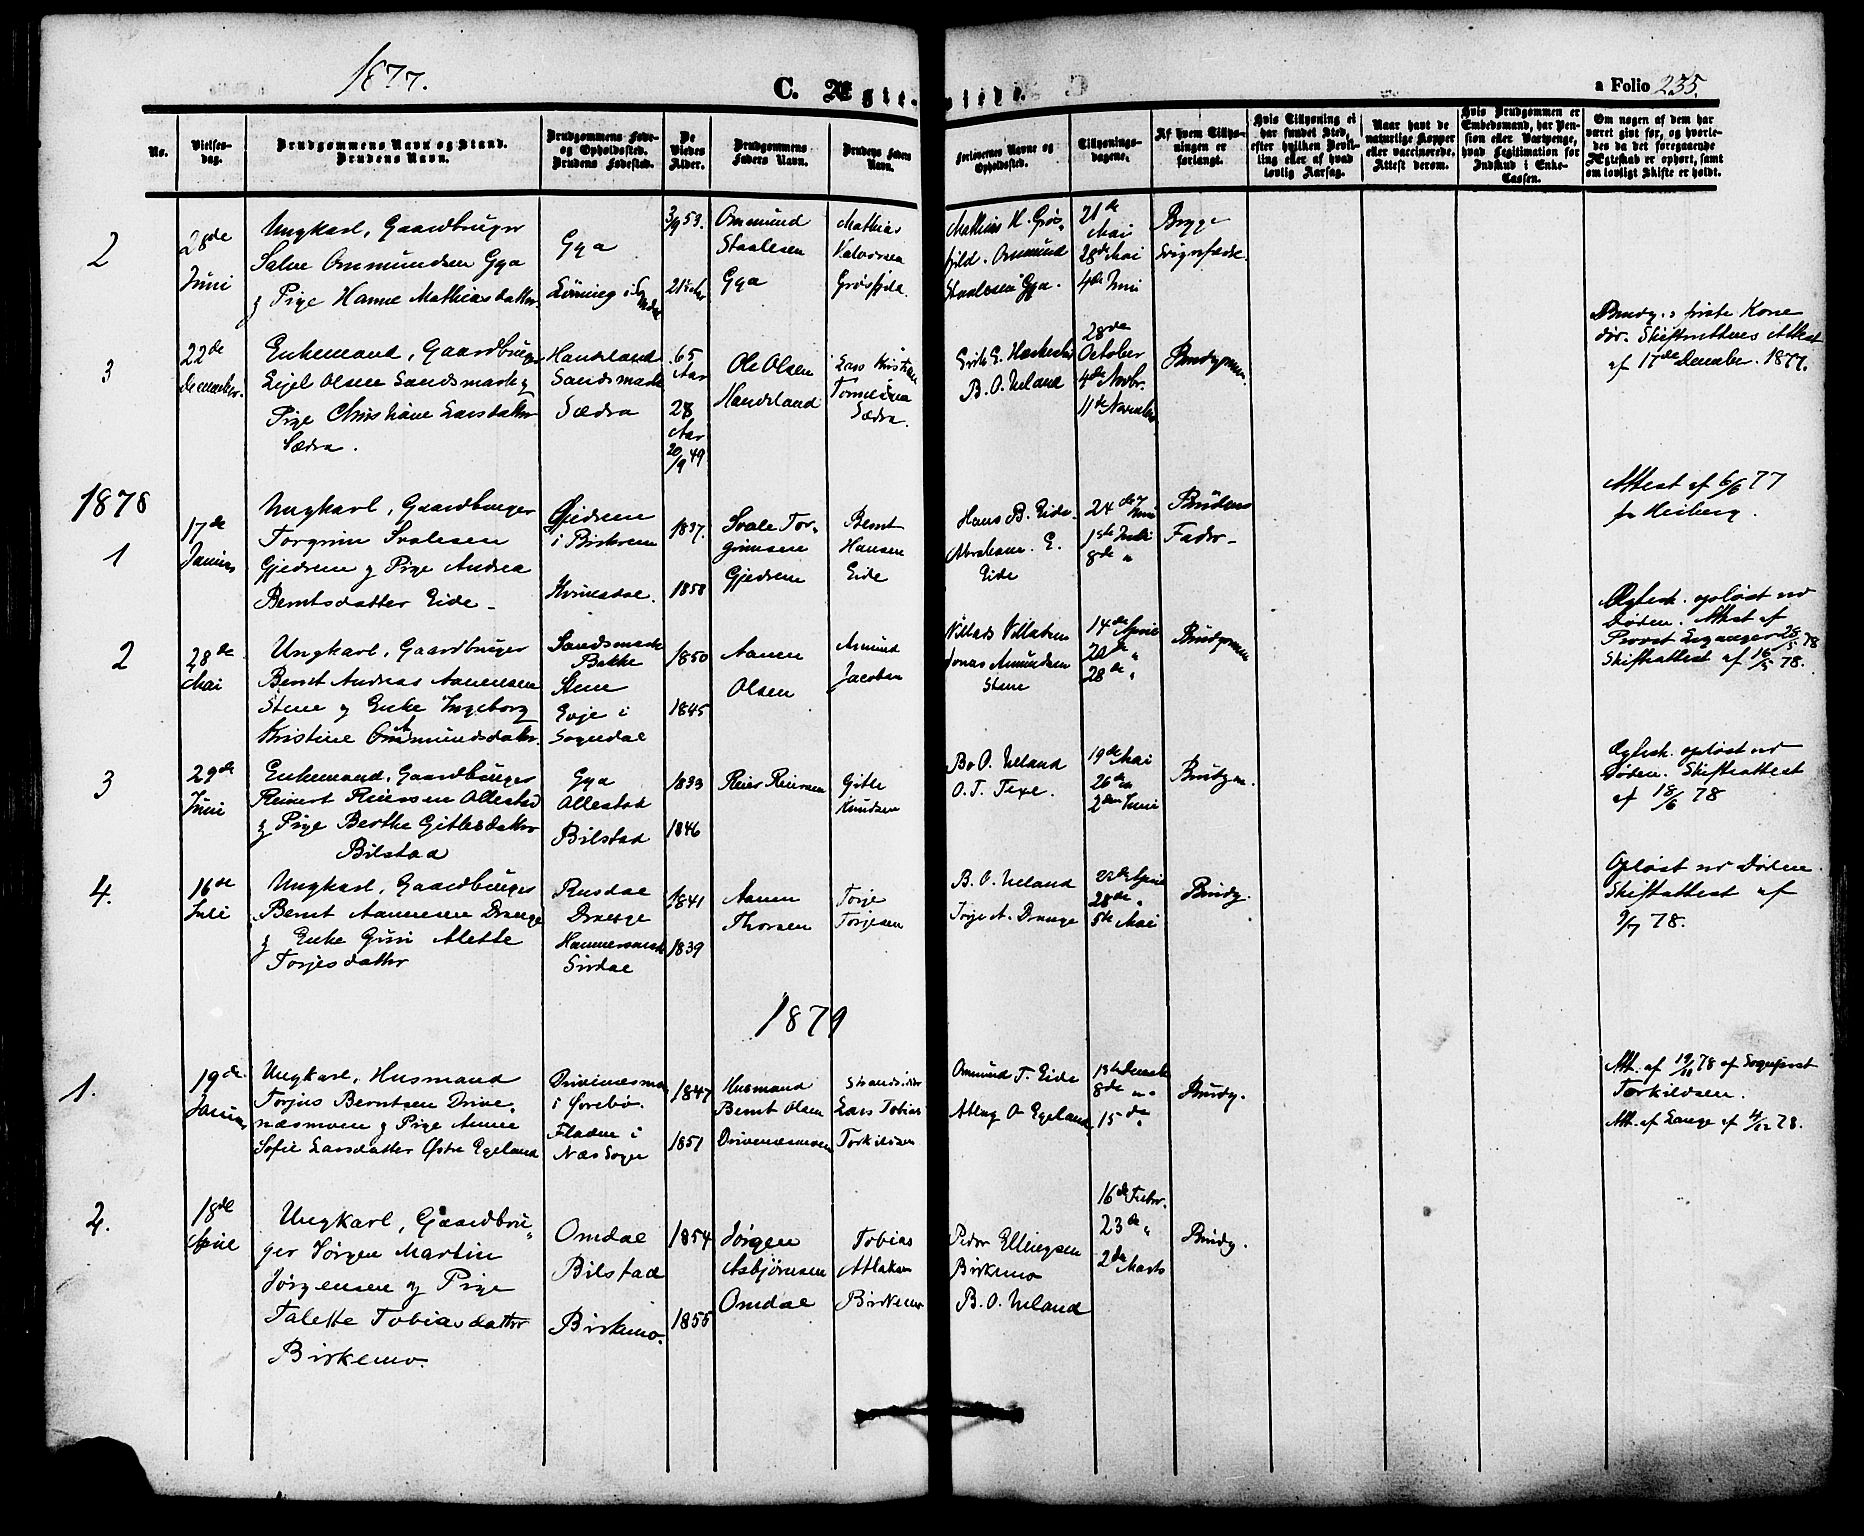 1877.
C. Ægte-
vielse.
a Folio 235.
No.
Vielses-
dag.
Brudgommens Navn og Stand.
Brudens Navn.
Brudgommens Føde-
og Opholdssted.
Brudens Fødested.
De
Viedes
Alder.
Brudgommens
Faders Navn.
Brudens Faders
Navn.
Forlovernes Navne og
Opholdssted.
Tillysnings-
dagene.
Af hvem Tillys-
ningen er
forlangt.
Hvis Tillysning ei
har fundet Sted,
efter hvilken Bevil-
ling eller af hvad
lovlig Aarsag.
Naar havt de
naturlige Kopper
eller vaccinerede.
Attest derom.
Hvis Brudgommen er
Embedsmand, har Pen-
sion eller Vartpenge,
hvad Legitimation for
Indskud i Enke-
Cassen.
Om nogen af dem har
været givt før, og hvorle-
des da det foregaaende
Ægteskab er ophørt, samt
om lovligt Skifte er holdt.
2
28de
Juni
Ungkarl, Gaardbruger
Salve Ommundsen Gya
g Pige Hanne Mathiasdatter
Gya
3/9 53.
Ommund
Staalesen
Gya
Mathias
Grøsfjeld. Ommund
Staalesen Gya.
21de
Mai
28de Mai
4de Juni
Brygge
3
22de
December.
Enkemand, Gaardbruger
Eiel Olsen Sandsmark g
Pige Christiane Larsdatter
Sædra.
Handeland
Sandsmark
Sædra
65
Aar
28
Aar
20/9 49
Ole Olsen
Handeland
Lars Kristian
Sædra.
B. O. Ueland
28de
October
4de Novbr.
11de November
Brudgommen.
Brudg.s første Kone
dør. Skifterettens Attest
af 17de December. 1877.
1878
1
17de
Januar
Ungkarl, Gaardbruger
Torgrim Svalesen
Gjedrem g Pige Andrea
Berntsdatter Eide
Gjedrem
i Birkrem
Kvinesdal.
1837.
1858
Svale Tor-
grimsen
Gjedrem
Bernt
Hansen
Eide
Hans B. Eide.
Abraham. E.
Eide
24de Juni
1ste Juli
8de "
Brudens
Fader
Attest af 6/6 77
fr Heiberg.
2
28de
Mai
Ungkarl, Gaardbruger
Bernt Andreas Aanensen
Stene g Enke Ingeborg
Kristine Ommundsdatter.
Sandsmark
Bakke
Stene
Eoje i
Sogndal
1850
1845
Aanen
Olsen
Amund
Jacobsen
Villads Villadsen
Jonas Amundsen
Stene
14de April
20de "
28de "
Brudgommen
Ægtesk. opløst ved
Døden. Attest af
Skifteattest af 16/5 78.
3
29de
Juni
Enkemand, Gaardbruger
Reinert Reiersen Ollestad
g Pige Berthe Gitlesdatter
Bilstad
Gya
Ollestad
Bilstad
1833
1846
Reier Reiersen
Gitle
Knudsen
B. O. Ueland
O. T. Texe.
19de Mai
26de "
2den Juni
Brudgm.
Ægtesk. opløst ved
Døden. Skifteattest
af 18/6 78
4.
16de
Juli
Ungkarl, Gaardbruger
Bernt Aanensen Drange
g Enke Guri Alette
Torjesdatter
Rusdal
Drange
Sirdal
1841
1839
Aanen
Thorsen
Torje
Torjesen
B. O. Ueland
Torje A. Drange
22de April
28de "
5te Mai
Brudg.
Opløst ved Døden.
Skifteattest af
9/7 78.
1879
1.
19de
Januar
Ungkarl, Husmand
Torjus Berntsen Drive-
næsmoen g Pige Anne
Sofie Larsdatter Østre Egeland
Drivenæsmoen
i Øvrebø.
Fladen i
Næs Sogn
1847
1851
Husmand
Bernt Olsen
Drivenæsmoen
Strandsidder
Lars Tobias
Torkildsen
Ommund T. Eide
Atlag O Egeland
1ste December
8de "
15de "
Brudg.
Att. af 19/11 78 af Sogneprest
Torkildsen.
Att. af Lange af 4/12 78.
2.
18de
April
Ungkarl, Gaardbru-
ger Jørgen Martin
Jørgensen g Pige
Talette Tobiasdatter
Birkemo.
Omdal
Bilstad
Birkemo.
1854
1855
Jørgen
Asbjørnsen
Omdal
Tobias
Atlaksen
Birkemo
Peder Ellingsen
Birkemo
B. O. Ueland
16de Febr.
23de "
2de Marts
Brudg.